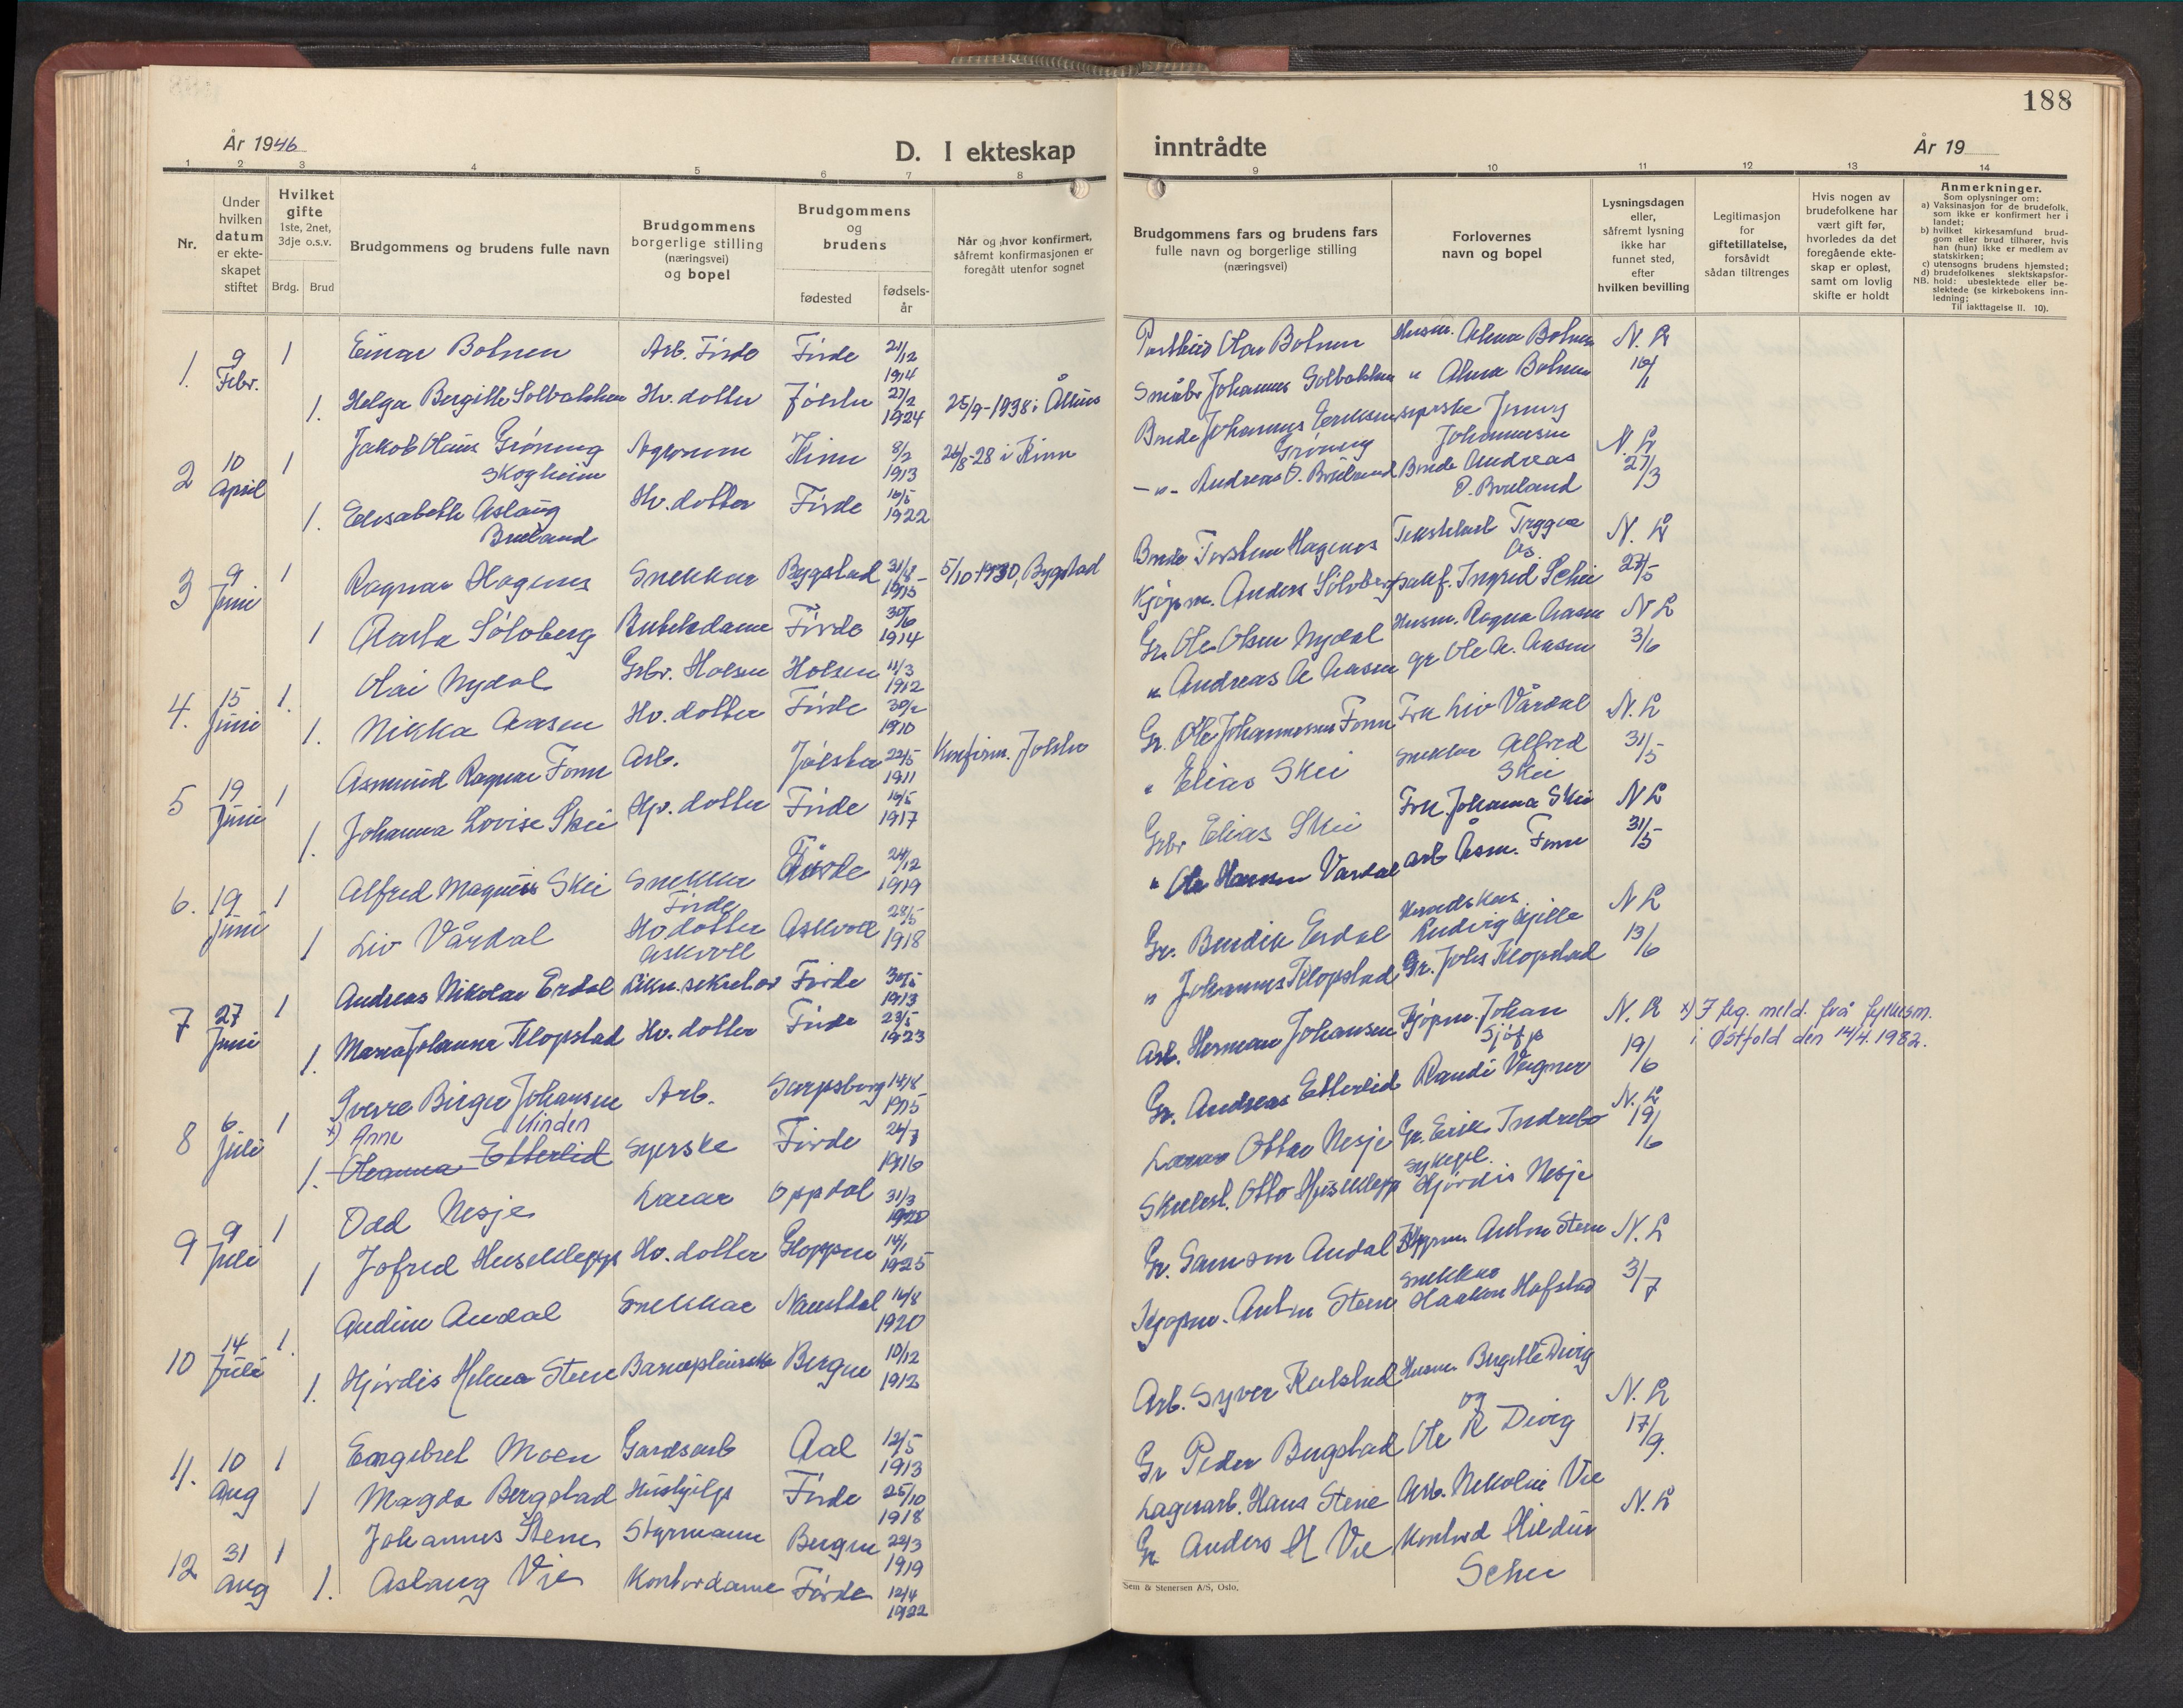 188
År 1946
D. I ekteskap inntrådte
År 19
1 2 3 4 5 6 7 8 9 10 11 12 13 14
Nr.
Under hvilken datum er ekteskapet stiftet
Hvilket gifte 1ste, 2net, 3dje o.s.v.
Brdg. Brud
Brudgommens og brudens fulle navn
Brudgommens borgerlige stilling (næringsvei) og bopel
Brudgommens og brudens
fødested
fødselsår
Når og hvor konfirmert, såfremt konfirmasjonen er foregått utenfor sognet
Brudgommens fars og brudens fars fulle navn og borgerlige stilling (næringsvei)
Forlovernes navn og bopel
Lysningsdagen eller, såfremt lysning ikke har funnet sted, efter hvilken bevilling
Legitimasjon for giftetillatelse, forsåvidt sådan tiltrenges
Hvis nogen av brudefolkene har vært gift før, hvorledes da det foregående ekteskap er opløst, samt om lovlig skifte er holdt
Anmerkninger.
Som oplysninger om:
a) Vaksinasjon for de brudefolk, som ikke er konfirmert her i landet;
b) hvilket kirkesamfund brudgom eller brud tilhører, hvis han (hun) ikke er medlem av statskirken;
c) utensogns brudens hjemsted;
d) brudefolkenes slektskapsforhold: ubeslektede eller beslektede (se kirkebokens innledning;
NB. Til iakttagelse II. 10).
1. 9 Febr. 1 Einar Bolnen Arb. Førde Førde 21/12 1914
1. Helga Bergitte Solbakken Hv. dotter Jølster 27/2 1924 25/9-1938 i Ålhus
2 10 April 1 Jakob Olaus Grøning Skogheim Agronom Kinn 8/2 1913 26/8-28 i Kinn
1. Elisabeth Aslaug Bruland Hv. dotter Førde 16/5 1922
3 9 Juni 1 Ragnar Hagenes Snekkar Bygstad 31/8-1915 5/10-1930, Bygstad
1 Aasta Sølvberg Butikdame Førde 30/6 1914
4. 15 Juni 1. Olai Nydal Grbr. Holsen Holsen 11/3 1912
1. Nikka Aasen Hv. dotter Førde 30/2 1910
5 19 Juni 1 Asmund Ragnar Fonn Arb. Jølster 22/5 1911 Konfirm. Jølster
1. Johanna Lovise Skei Hv. dotter Førde 16/5 1917
6. 19 Juni 1 Alfred Magnus Skei Snekker Førde Førde 24/12 1919
1 Liv Vårdal Hv dotter Askvoll Askvoll 28/5 1918
7 27 Juni 1 Andreas Nikolai Erdal Likn. sekretær Førde 30/5 1913
1. Maria Johanna Klopstad Hv. dotter Førde 23/5 1923
8 6 Juli 1 Sverre Birger Johansen Arb. Sarpsborg 14/8 1915
1. x) Anne Linden Oleanna Etterlid Syerske Førde 26/7 1916
9 9 Juli 1 Odd Nesje Lærar Oppdal 31/3 1920
1 Jofrid Huseklepp Hv. dotter Gloppen 14/1 1925
10 14 Juli 1. Audun Audal Snekkar Naustdal 16/8 1920
1. Hjørdis Helena Stene Barnepleierske Bergen 10/12 1912
11. 10 Aug 1 Engebret Moen Gardsarb Aal 12/5 1913
1 Magda Bergstad Hushjelp Førde 25/10 1918
12 31 Aug 1 Johannes Stene Styrmann Bergen 22/3 1919
1. Aslaug Vie Kontordame Førde 12/4 1922
Postbud Olav Bolnen Husm. Alma Bolnen N. L
Småbr Johannes Solbakken " Alma Bolnen
Bonde Johannes Eriksen Grøning syerske Jenny Johannesen N. L
-"- Andreas O. Bruland Bonde Andreas O. Bruland 27/3
Bonde Torstein Hagenes Tekstilarb Trygve Ås N. L
Kjøpm. Anders Sølvberg Ingrid Schei 23/5
Gr. Ole Olsen Nydal Husm. Ragna Aasen N L
" Andreas A Aasen gr Ole A. Aasen 3/6
Gr. Ole Johannessen Fonn Frk Liv Vårdal N. L
" Elias Skei snekkar Alfred Skei 31/5
Grbr Elias Skei Frk. Johanna Skei N L
" Ole Hansen Vardal arb Åsm. Fonn 31/5
Gr. Bendik Erdal Heradskas. Ludvig Gjelle N L
" Johannes Klopstad Gr. Johs Klopstad 13/6
Arb. Herman Johansen Kjøpm. Johan N. L x) I flg. meld. frå fylkesm.
Gr. Andreas Etterlid Randi Vegner 19/6 i Østfold den 14/4.1982.
Lærar Ottar Nesje Gr. Erik Indrebø N. L 19/6
Skulest. Otto Huseklepp Sykepl. Hjørdis Nesje
Gr. Samson Audal Kjøpm Anton Stene N. L
Kjøpm. Anton Stene Snekkar Haakon Hafstad 3/7
Arb. Syver Kolstad Husm Bergitte Devig og N. L
Gr Peder Bergstad Ole R Devig 17/9.
Lagerarb. Hans Stene Arb. Nikolai Vie N. L
Gr Anders M Vie Kontord Hildur Schei
Sem & Stenersen A/S, Oslo.